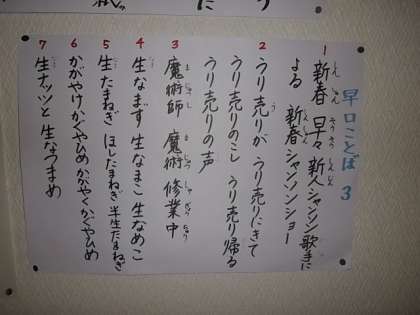 早口ことば 3
1 新春 早々 新人シャンソン歌手に
よる 新春シャンソンショー
2 うり売りが うり売りにきて
うり売りのこし うり売り帰る
うり売りの声
3 魔術師 魔術修業中
4 生なまず 生なまこ 生なめこ
5 生たまねぎ ほしたまねぎ 半生たまねぎ
6 かがやけかぐやひめ かがやくかぐやひめ
7 生ナッツと 生なつまめ